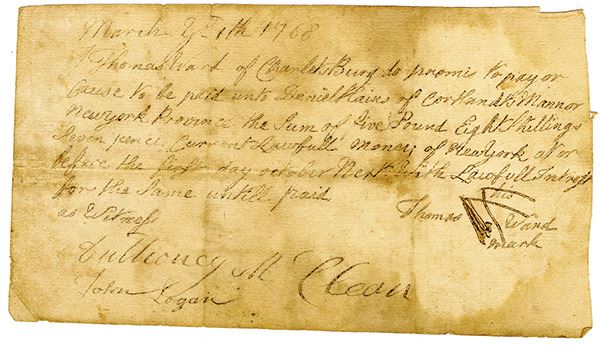 March ye 1th 1768
I Thomas Ward of Charlets Burg do promis to pay or
Cause to be paid unto Daniel Hains of Cortlandts Mannor
Newyork Province the Sum of five Pound Eight Shillings
Seven pence Current Lawfull money of Newyork at or
before the first day october Next With Lawfull Intrest
for the Same untill paid
as Witness
his
Thomas Ward
mark
Mc Clean
John Logan